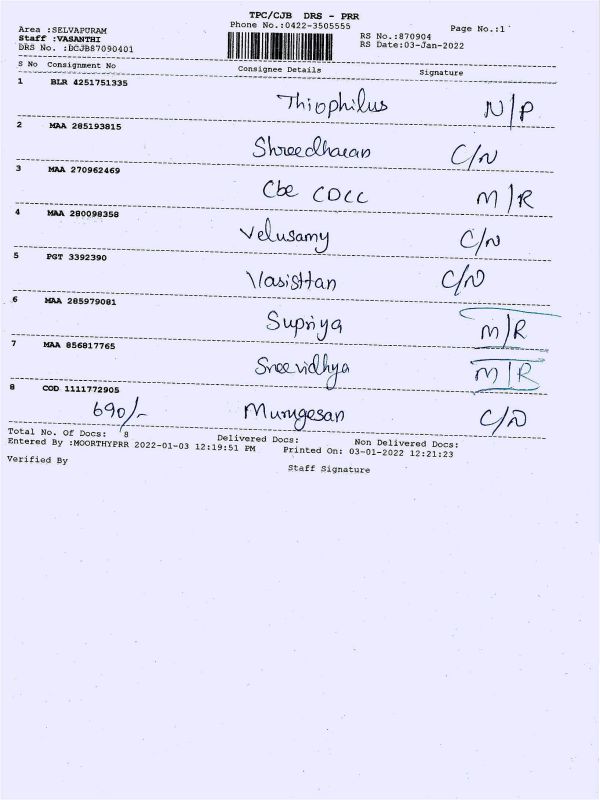 TPC/CJB DRS - PRR
Area :SELVAPURAM Phone No.:0422-3505555 Page No.:1
Staff :VASANTHI RS No.:870904
DRS No. :DCJB87090401 RS Date:03-Jan-2022
S No Consignment No Consignee Details Signature
1 BLR 4251751335
Thiophilus N/P
2 MAA 285193815
Shreedharan C/N
3 MAA 270962469
Cbe CDCC M/R
4 MAA 280098358
Velusamy C/N
5 PGT 3392390
Vasisttan C/N
6 MAA 285979081
Supriya M/R
7 MAA 856817765
Sreevidhya M/R
8 COD 1111772905
690/- Murugesan C/N
Total No. Of Docs: 8 Delivered Docs: Non Delivered Docs:
Entered By :MOORTHYPRR 2022-01-03 12:19:51 PM Printed On: 03-01-2022 12:21:23
Verified By Staff Signature